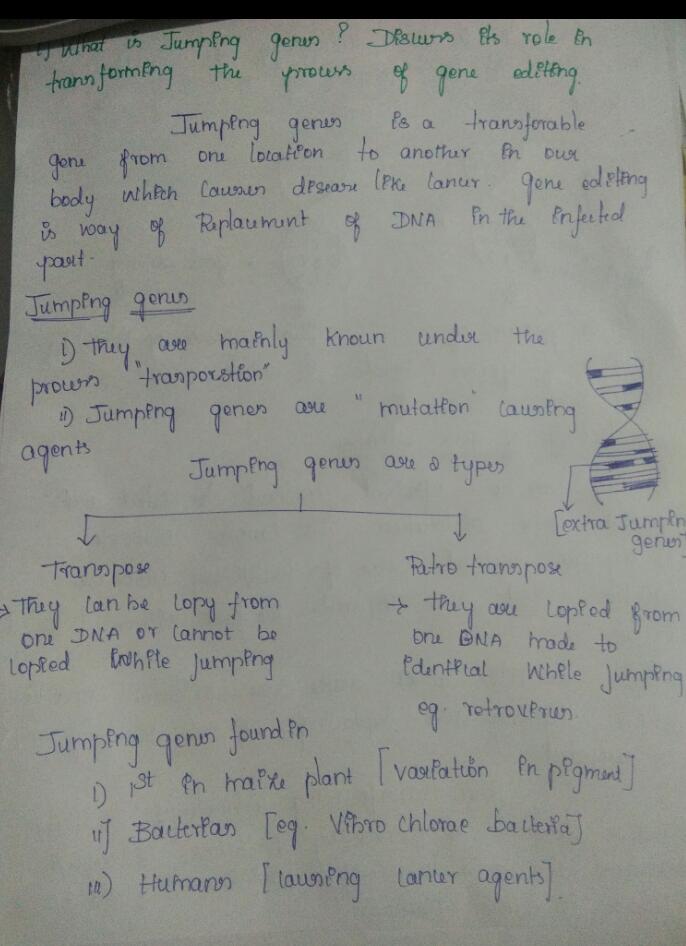 1) What is Jumping genes? Discuss its role in
transforming the process of gene editing.
Jumping genes is a transforable
gene from one location to another in our
body which causes disease like cancer. gene editing
is way of Replacement of DNA in the infected
part.
Jumping genes
i) they are mainly known under the
process "trasporstion"
ii) Jumping genes are "mutation" causing
agents
Jumping genes are 2 types
[extra Jumping
genes]
Transpose
→ They can be copy from
one DNA or cannot be
copied while jumping
Ratro transpose
→ they are copied from
one DNA made to
identical while jumping
eg. retroverus
Jumping genes found in
i) 1st in maize plant [variation in pigment]
ii] Bacterias [eg. Vibro chlorae bacteria]
iii) Humans [causing cancer agents].